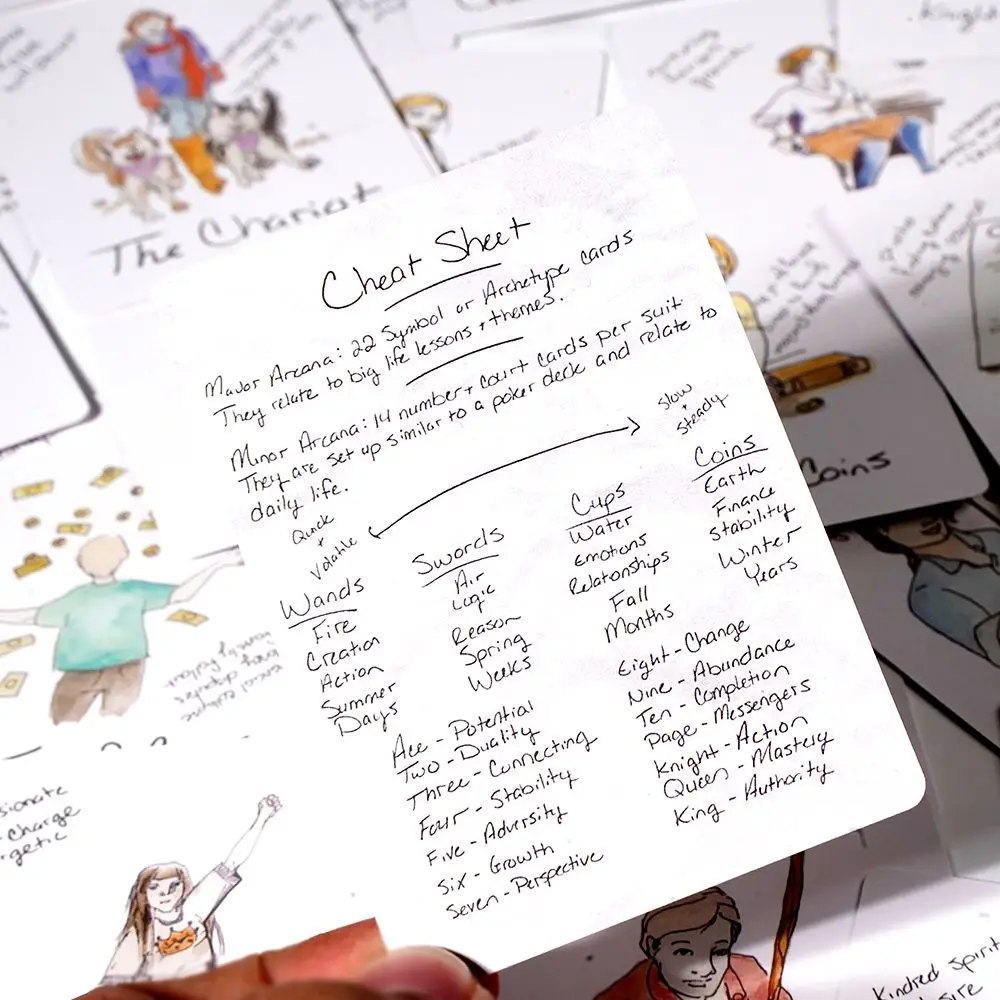 Knight
The Chariot
Cheat Sheet
Major Arcana: 22 Symbol or Archetype cards
They relate to big life lessons + themes.
Minor Arcana: 14 number + court cards per suit
They are set up similar to a poker deck and relate to
daily life.
Quick
+
Volatile
Slow
+
Steady
Wands
Fire
Creation
Action
Summer
Days
Swords
Air
Logic
Reason
Spring
Weeks
Cups
Water
Emotions
Relationships
Fall
Months
Coins
Earth
Finance
Stability
Winter
Years
Ace - Potential
Two - Duality
Three - Connecting
Four - Stability
Five - Adversity
Six - Growth
Seven - Perspective
Eight - Change
Nine - Abundance
Ten - Completion
Page - Messengers
Knight - Action
Queen - Mastery
King - Authority
Coins
Charge
Kindred Spirit